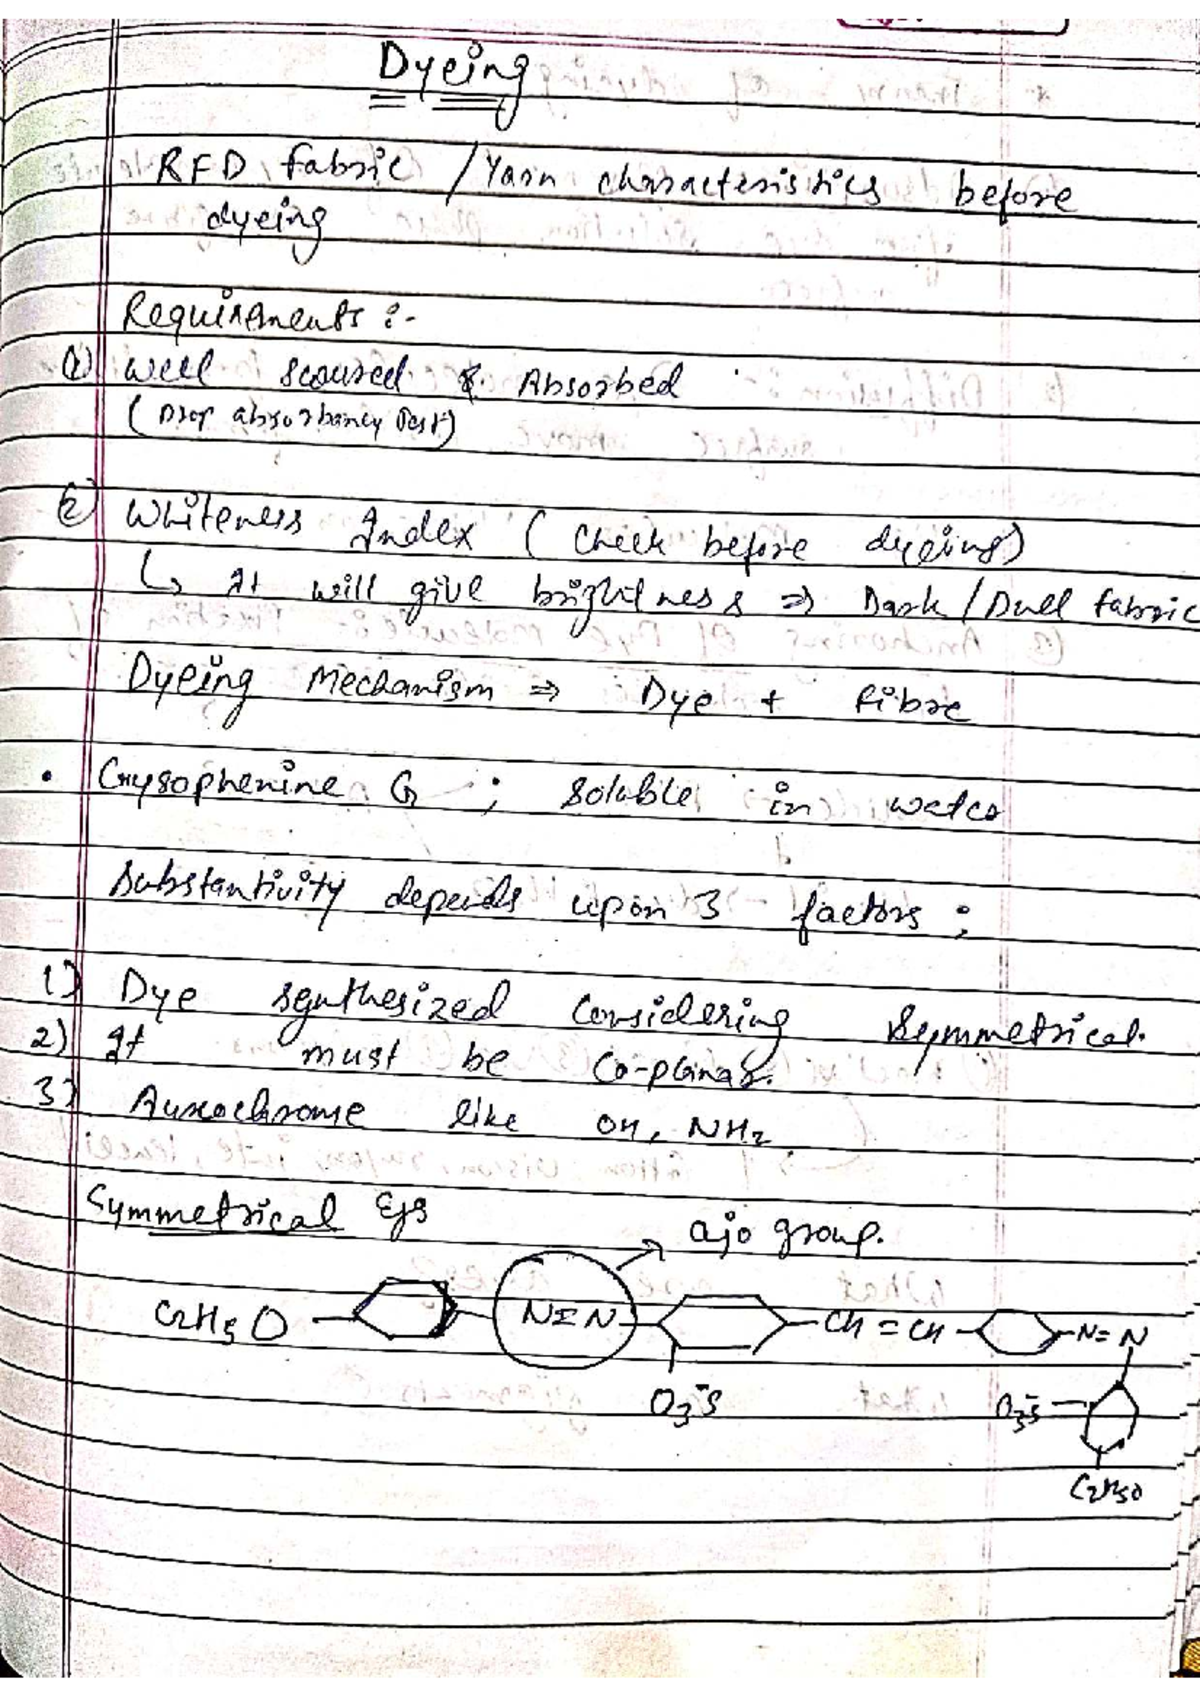 Dyeing
RFD fabric / Yarn characteristics before
dyeing
Requirements :-
(1) Well scoured & Absorbed
(Drop absorbancy test)
(2) Whiteness Index (Check before dyeing)
↳ It will give brightness ⇒ Dark/Dull fabric
Dyeing Mechanism ⇒ Dye + fibre
• Crysophenine G ; soluble in water
Substantivity depends upon 3 factors ;
1) Dye synthesized considering symmetrical.
2) It must be Co-planar.
3) Auxochrome like OH, NH2
Symmetrical Egs
azo group.
C2H5O N=N CH=CH N=N
O3-S O3-S
C2H5O